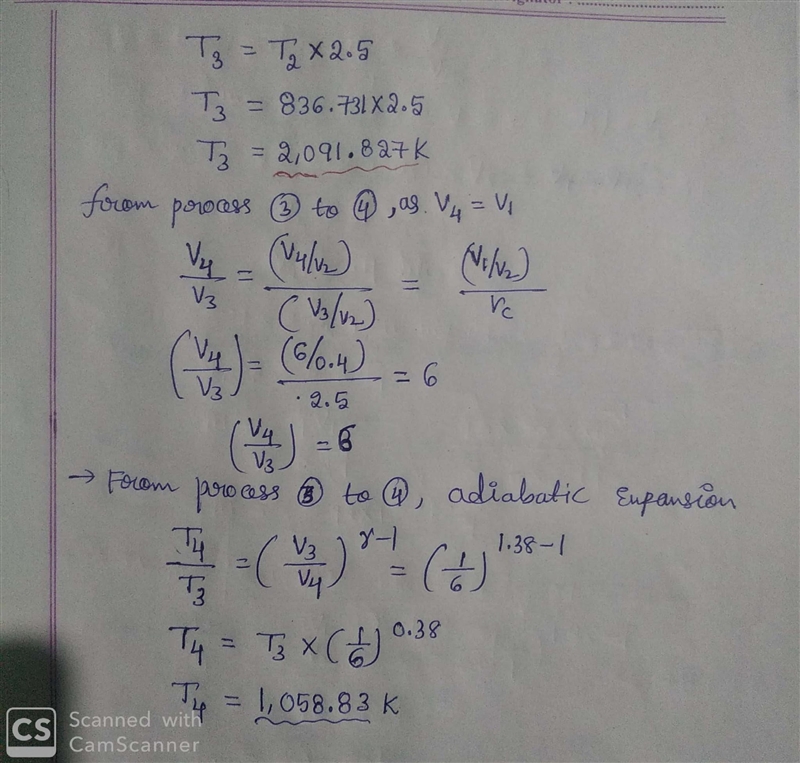 T3 = T2 × 2.5
T3 = 836.731 × 2.5
T3 = 2,091.827 K
from process ③ to ④, as V4 = V1
V4/V3 = (V4/V2)/(V3/V2) = (V1/V2)/rc
(V4/V3) = (6/0.4)/2.5 = 6
(V4/V3) = 6
→ From process ③ to ④, adiabatic Expansion
T4/T3 = (V3/V4)^γ-1 = (1/6)^1.38-1
T4 = T3 × (1/6)^0.38
T4 = 1,058.83 K
CS Scanned with
CamScanner